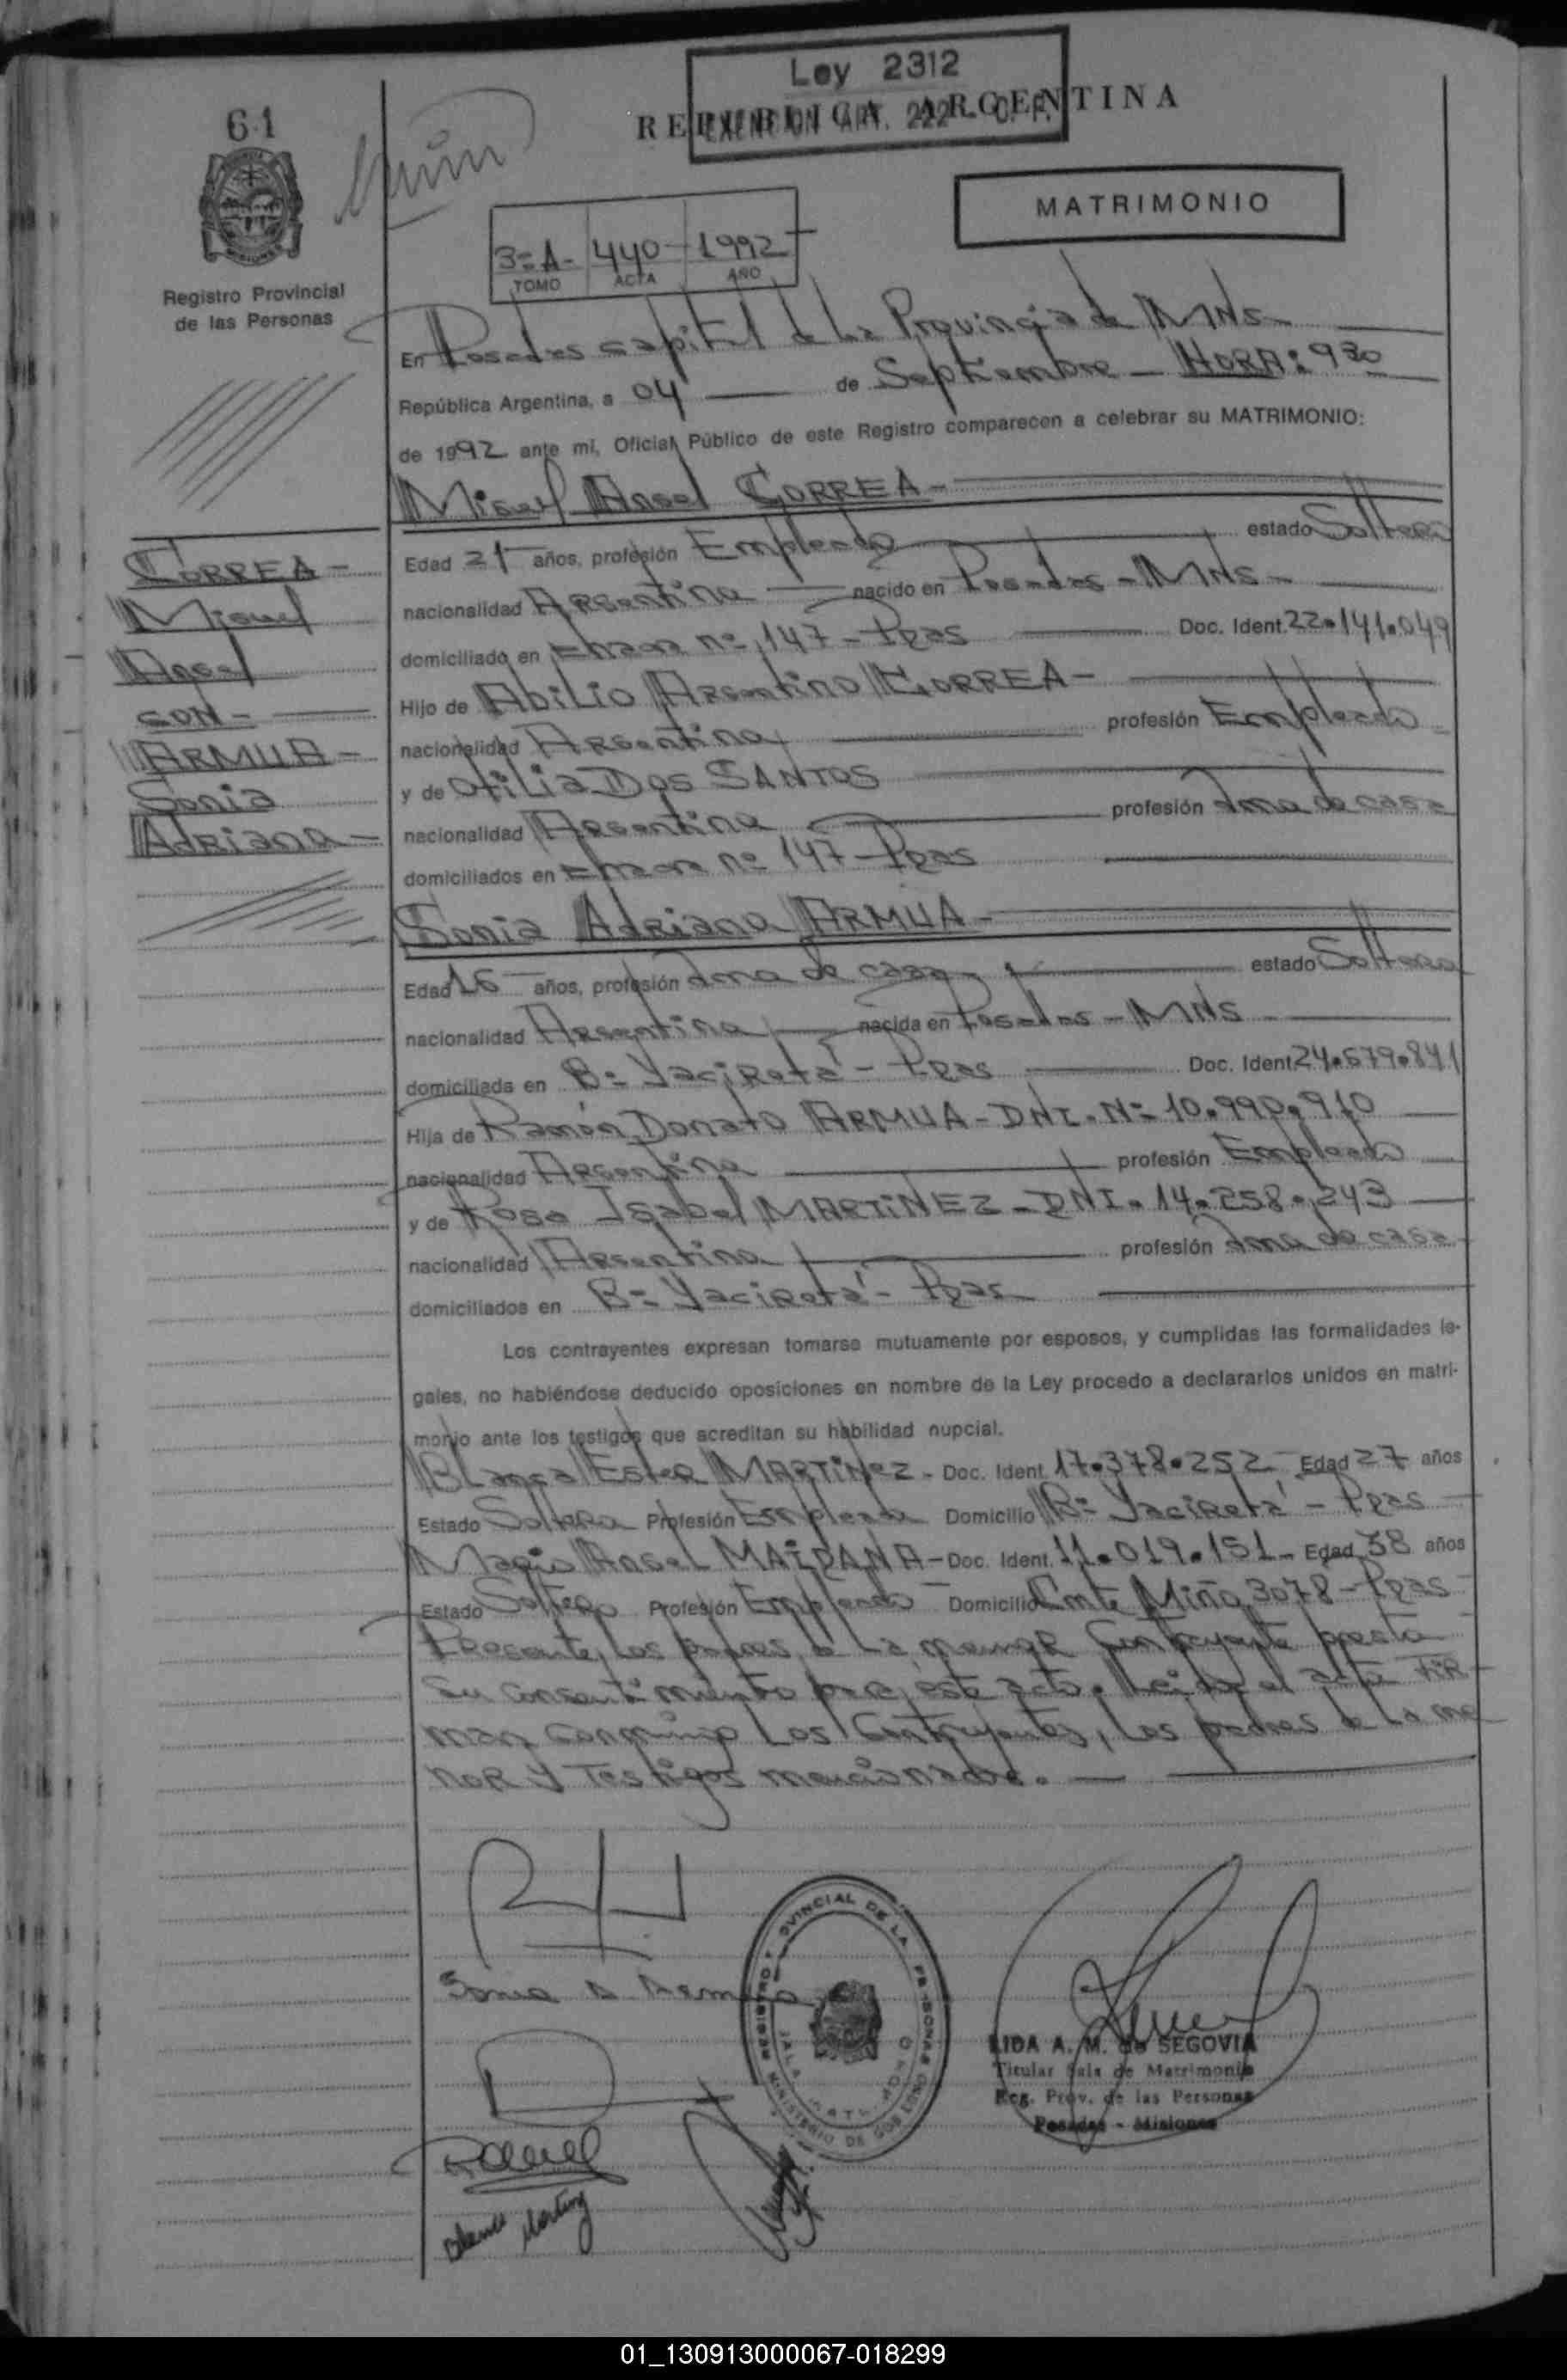 Ley 2312
REPUBLICA ARGENTINA
EXENCION ART. 222 - C. F.
61
MATRIMONIO
3=A- 440 - 1992
TOMO ACTA AÑO
Registro Provincial
de las Personas
En Posadas capital de La Provincia de MNs-
República Argentina, a 04 de Septiembre - HORA: 9 30
de 1992 ante mi, Oficial Público de este Registro comparecen a celebrar su MATRIMONIO:
Miguel Angel CORREA-
CORREA-
Miguel
Angel
CON-
ARMUA-
Sonia
Adriana-
Edad 21 años, profesión Empleado estado Soltero
nacionalidad Argentina nacido en Posadas - MNs-
domiciliado en nº 147 - Pdas Doc. Ident. 22.141.049
Hijo de Abilio Argentino CORREA-
nacionalidad Argentina profesión Empleado
y de Otilia Dos SANTOS
nacionalidad Argentina profesión Ama de casa
domiciliados en nº 147 - Pdas
Sonia Adriana ARMUA-
Edad 16 años, profesión Ama de casa estado Soltera
nacionalidad Argentina nacida en Posadas - MNs
domiciliada en Bº Yaciretá - Pdas Doc. Ident. 24.579.841
Hija de Ramón Donato ARMUA - DNI. Nº 10.990.910
nacionalidad Argentina profesión Empleado
y de Rosa Isabel MARTiNEZ - DNI. 14.258.243
nacionalidad Argentina profesión Ama de casa
domiciliados en Bº Yaciretá - Pdas
Los contrayentes expresan tomarse mutuamente por esposos, y cumplidas las formalidades le-
gales, no habiéndose deducido oposiciones en nombre de la Ley procedo a declararlos unidos en matri-
monio ante los testigos que acreditan su habilidad nupcial.
Blanca Ester MARTiNEZ - Doc. Ident. 17.378.252 Edad 27 años
Estado Soltera Profesión Empleada Domicilio Bº Yaciretá - Pdas
Mario Angel MAIDANA - Doc. Ident. 11.019.151 - Edad 38 años
Estado Soltero Profesión Empleado Domicilio Cmte Miño 3078 - Pdas
Presente, Los padres de La menor Contrayente presta
su consentimiento para este acto. Leida el acta FiR-
man conmigo Los Contrayentes, Los padres de La me
noR y Testigos mencionados.
Sonia A. Armua
REGISTRO PROVINCIAL DE LA PERSONAS
MINISTERIO DE GOBIERNO
LIDA A. M. de SEGOVIA
Titular Sala de Matrimonio
Reg. Prov. de las Personas
Posadas - Misiones
Blanca Martinez
01_130913000067-018299